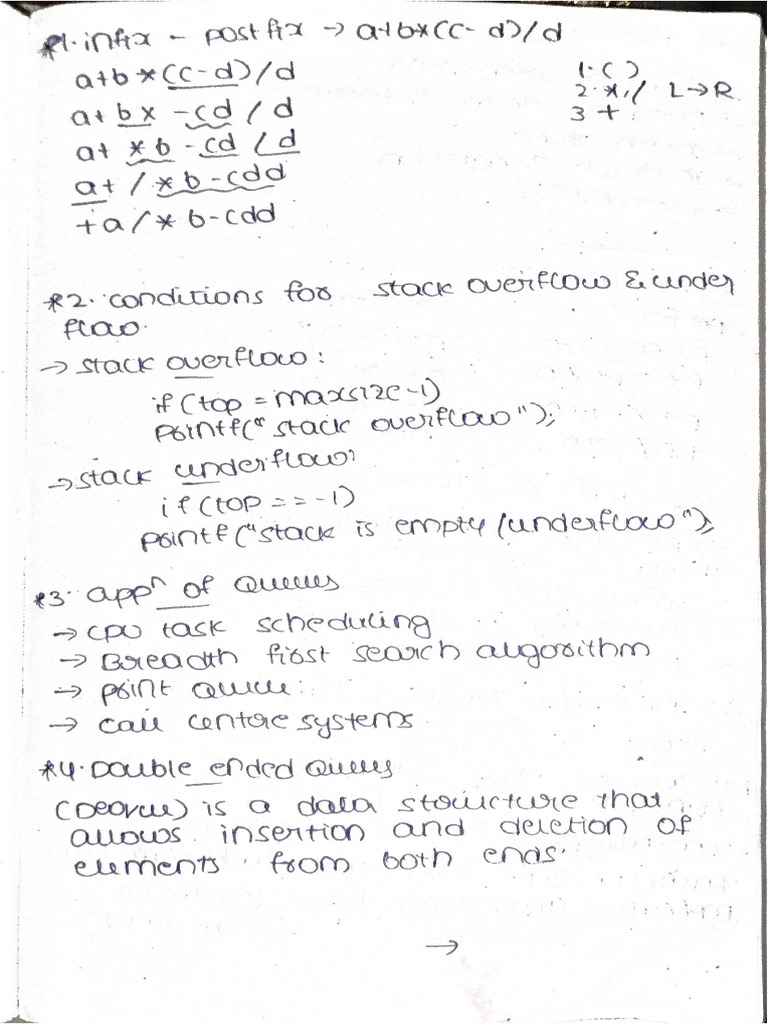 *1. infix - postfix → a+b*(c-d)/d
a+b*(c-d)/d
1. ( )
a+ b* -cd / d
2. *, / L→R
3 +
a+ *b-cd /d
a+ / *b-cdd
+a/*b-cdd
*2. conditions for stack overflow & under
flow.
→ stack overflow:
if (top = maxsize-1)
printf(" stack overflow");
→ stack underflow:
if (top == -1)
printf("stack is empty /underflow");
*3. appn of Queues
→ CPU task scheduling
→ Breadth first search algorithm
→ print Queue:
→ call centre systems
*4. Double ended Queues
(Deque) is a data structure that
allows insertion and deletion of
elements from both ends.
→